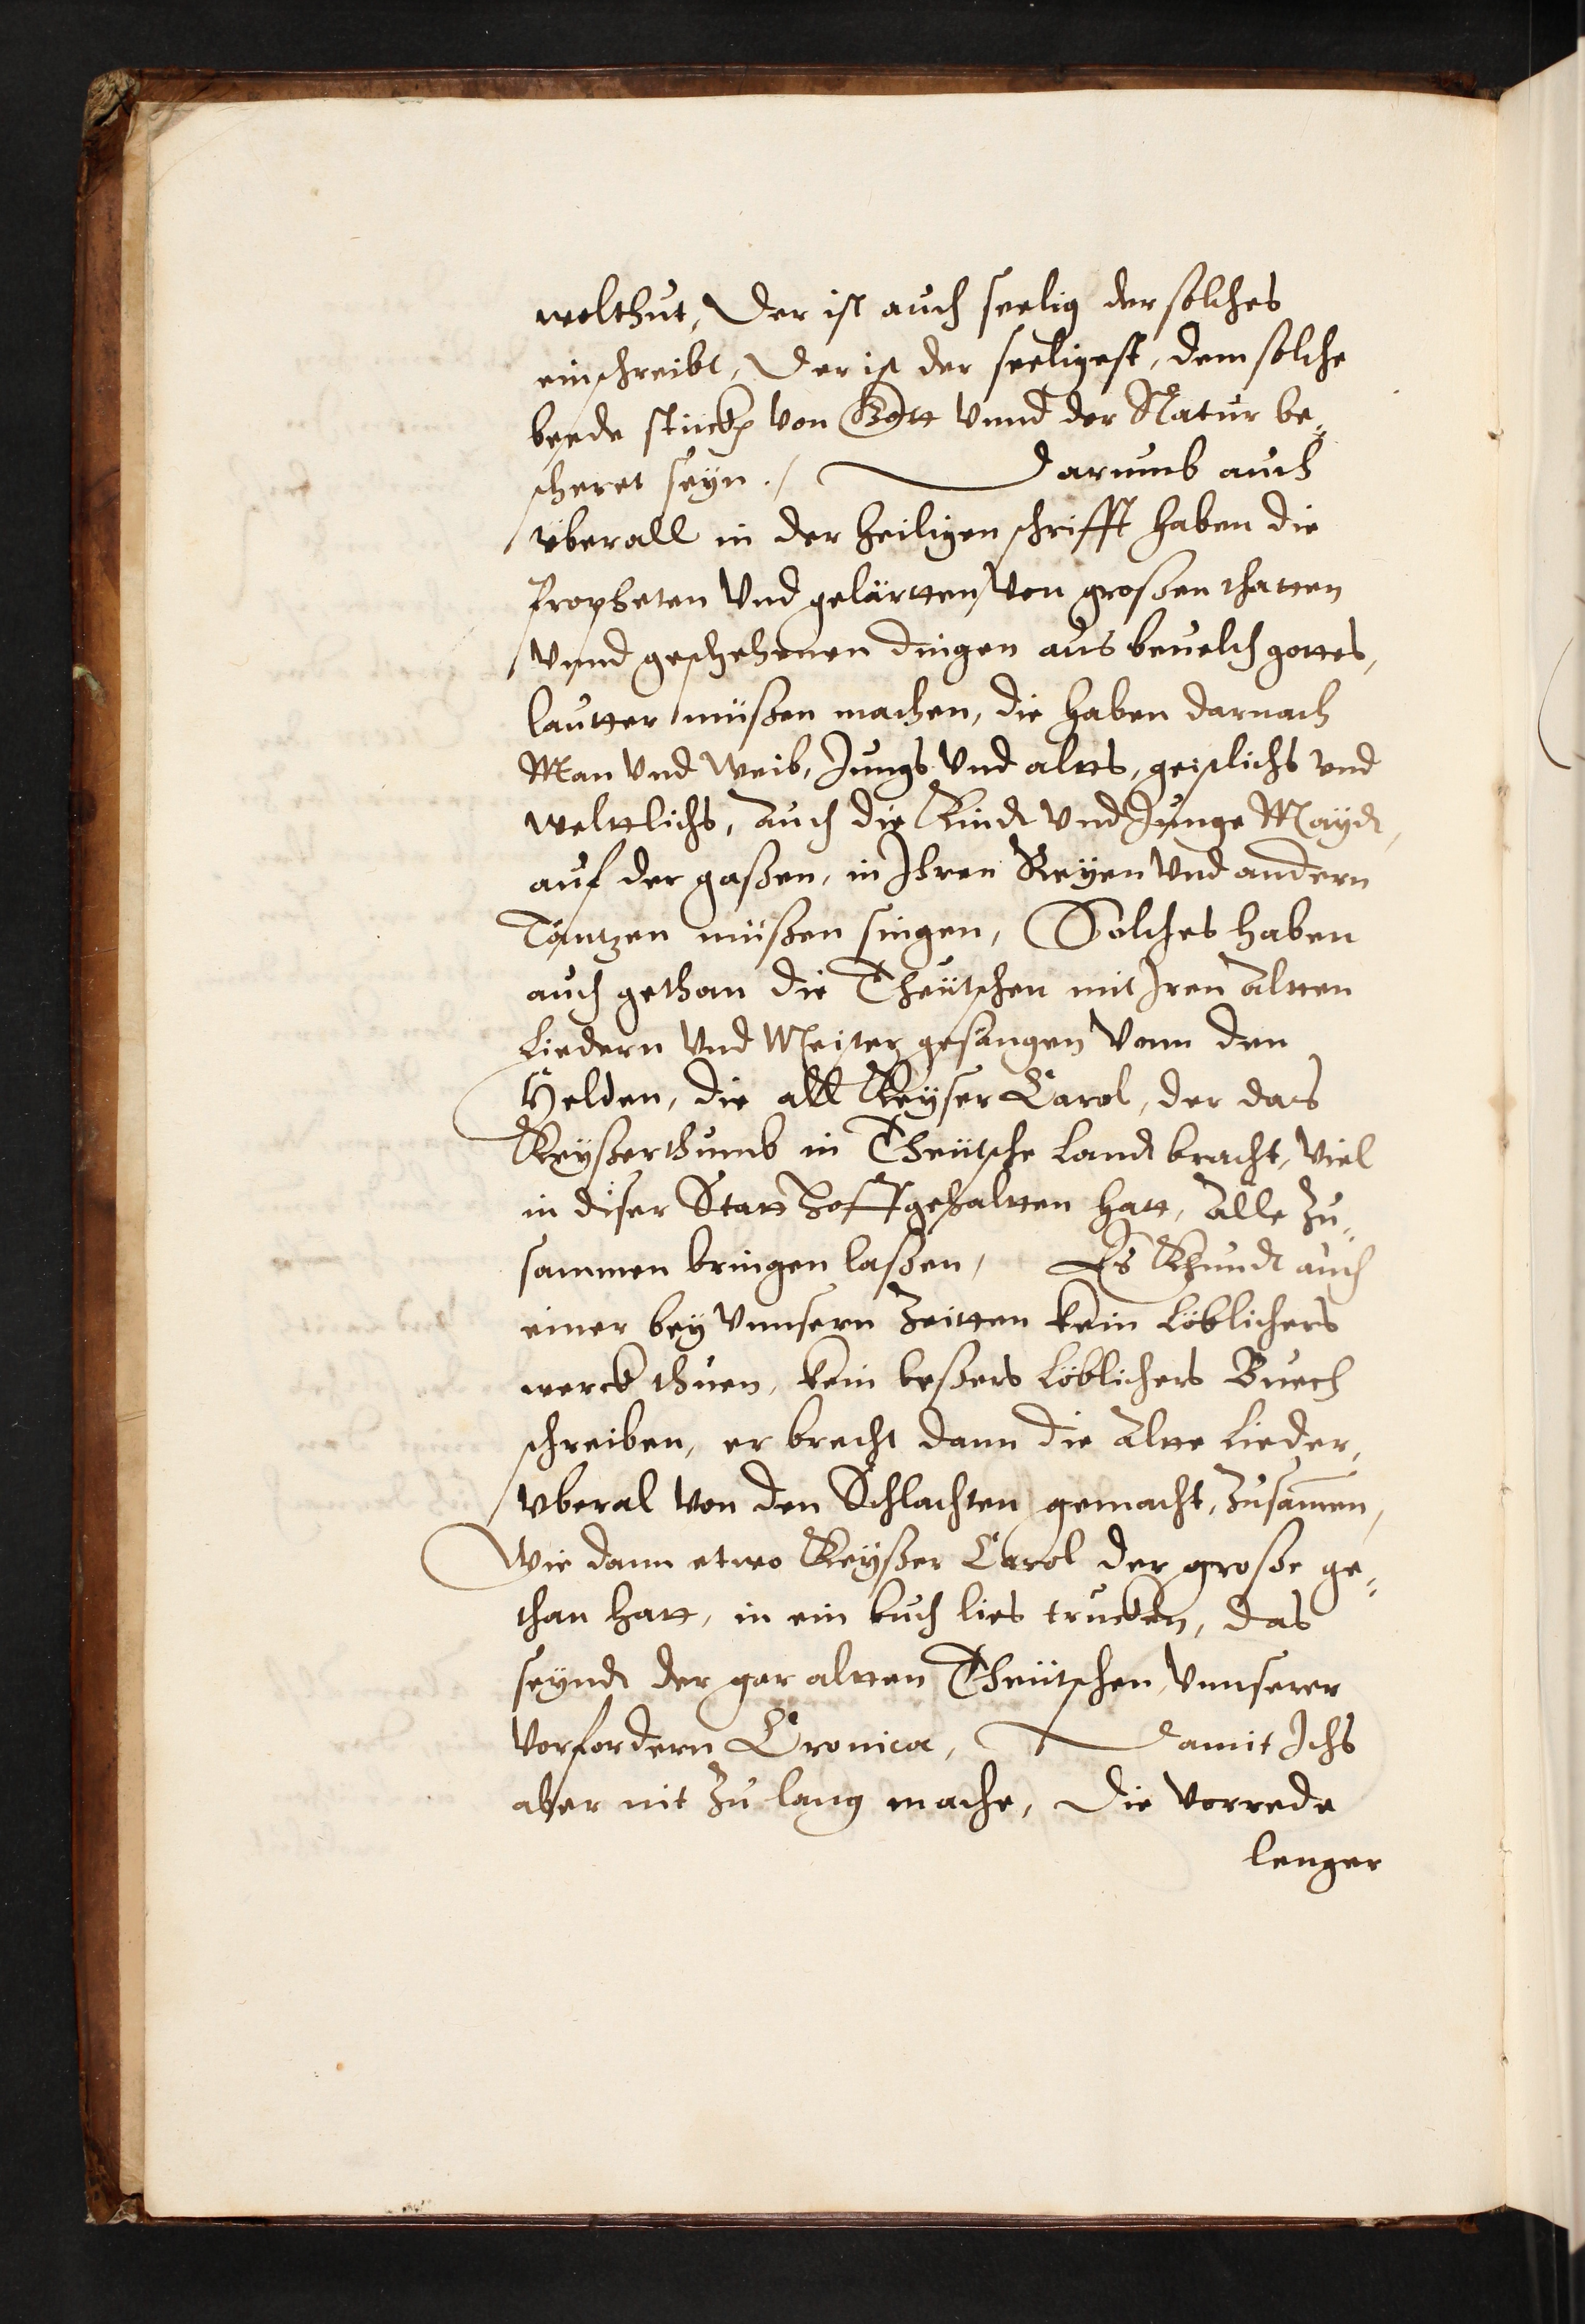 wolthut, Der ist auch seelig der solches
einschreibt, Der ist der seeligest, dem solche
beede stückh von Gott vnnd der Natur be¬
scheret seyn ./ Darumb auch
vberall in der heiligen schrifft haben die
Propheten Vnd gelärtten, Von großen thatten
Vnnd geschehenen dingen aus beuelch gottes,
lautter müßen machen, die haben darnach
Man Vnd Weib, Jungs Vnd altts, geistlichs vnd
welttlichs, Auch die Kindt Vnd Junge Maydt,
auf der gaßen, in Ihren Reyen Vnd andern
Täntzen müßen singen, Solches haben
auch gethan die Theütschen mit Iren Altten
Liedern Vnd Meister gesängen Vonn den
Helden, die all Keyser Carol, der das
Keyßerthumb in Theütsche Landt bracht, Viel
in diser Statt hoff gehaltten hatt, Alle Zu¬
sammen bringen laßen, Es Khundt auch
einer bey Vnnsern Zeitten kein Löblichers
werck thuen, kein beßers Löblichers Buech
schreiben, er brecht dann die Altte Lieder,
vberal Von den Schlachten gemacht, Zusam̄en,
Wie dann etwo Keyßer Carol der große ge¬
than hatt, in ein buch lies trucken, das
seyndt der gar altten Theütschen, Vnnserer
Vorfordern Cronica, Damit Ichs
aber nit Zu lang mache, Die Vorrede
lenger